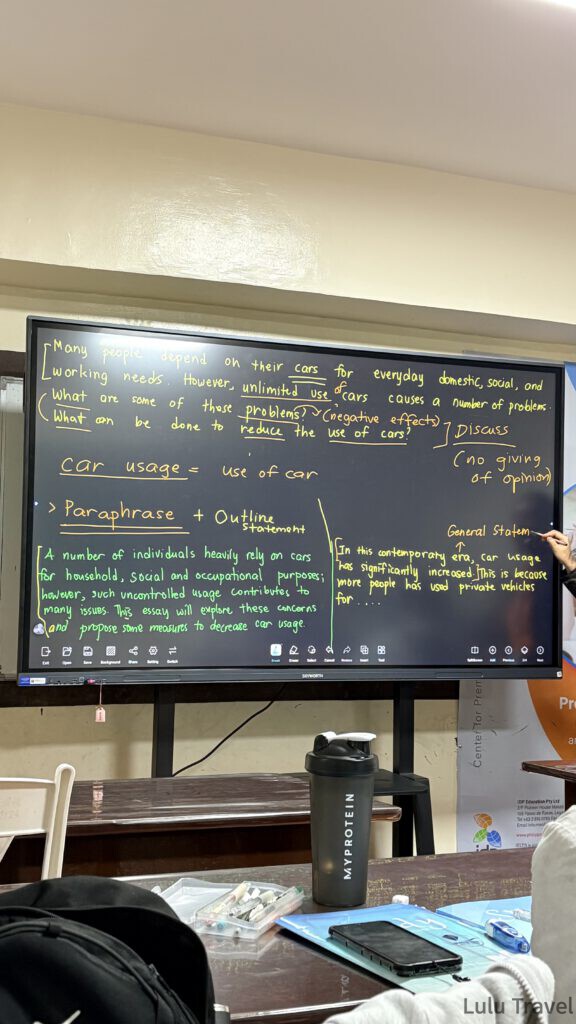 Many people depend on their cars for everyday domestic, social, and
working needs. However, unlimited use of cars causes a number of problems.
What are some of these problems? (negative effects)
What can be done to reduce the use of cars?
Discuss
(no giving
of opinion)
car usage = use of car
> Paraphrase + Outline
statement
A number of individuals heavily rely on cars
for household, social and occupational purposes;
however, such uncontrolled usage contributes to
many issues. This essay will explore these concerns
and propose some measures to decrease car usage.
General Statem
In this contemporary era, car usage
has significantly increased. This is because
more people has used private vehicles
for ....
Exit
Open
Save
Background
Share
Setting
Switch
Eraser
Select
Insert
Tool
Add
Previous
Next
SKYWORTH
Center for Prem
Pr
IDP Education Pty Ltd
MYPROTEIN
Lulu Travel